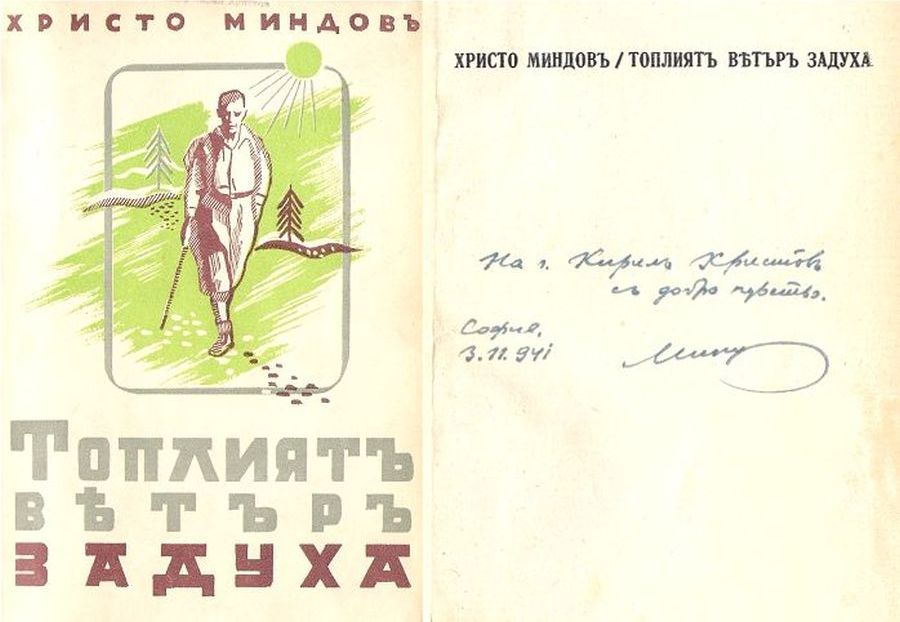 ХРИСТО МИНДОВЪ
ТОПЛИЯТЪ
ВѢТЪРЪ
ЗАДУХА
ХРИСТО МИНДОВЪ / ТОПЛИЯТЪ ВѢТЪРЪ ЗАДУХА
На г. Кирилъ Христовъ
съ добро чувство.
София,
3.11.941